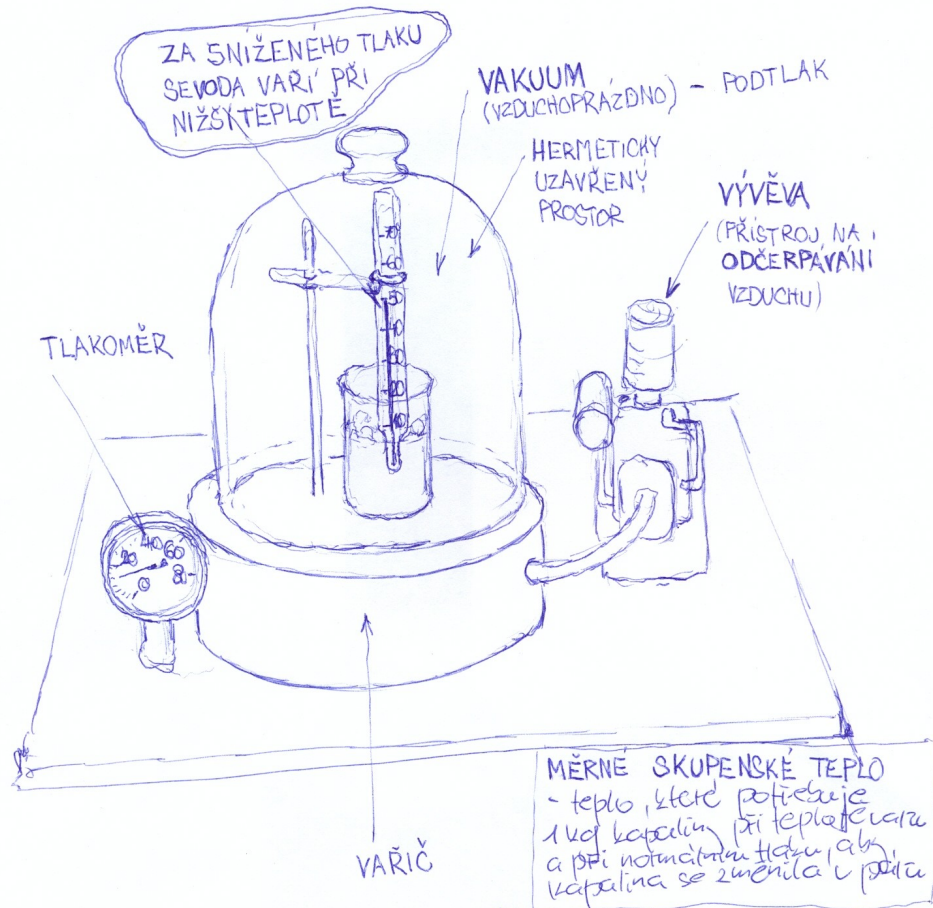 ZA SNÍŽENÉHO TLAKU
SEVODA VAŘÍ PŘI
NIŽŠÍ TEPLOTĚ
VAKUUM
(VZDUCHOPRÁZDNO) - PODTLAK
HERMETICKY
UZAVŘENÝ
PROSTOR
VÝVĚVA
(PŘÍSTROJ NA
ODČERPÁVÁNÍ
VZDUCHU)
TLAKOMĚR
70
60
50
40
30
20
10
20 40 60
0 80
VAŘIČ
MĚRNÉ SKUPENSKÉ TEPLO
- teplo, které potřebuje
1 kg kapaliny při teplotě varu
a při normálním tlaku, aby
kapalina se změnila v páru